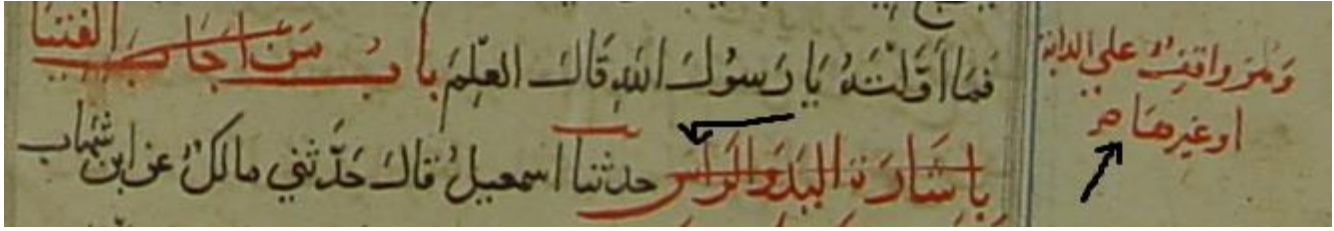 فما اَوَّلْتَهُ يَا رَسُولَ اللهِ قَالَ العِلْمَ بابُ مَنْ اجَابَ الفتيا
بِاشَارَةِ اليَدِ وَالراسِ حدثنا اسمعيلُ قال حَدَّثني مالكٌ عن ابن شهاب
وَهُوَ واقفٌ علي الدابة
او غيرهَا صح